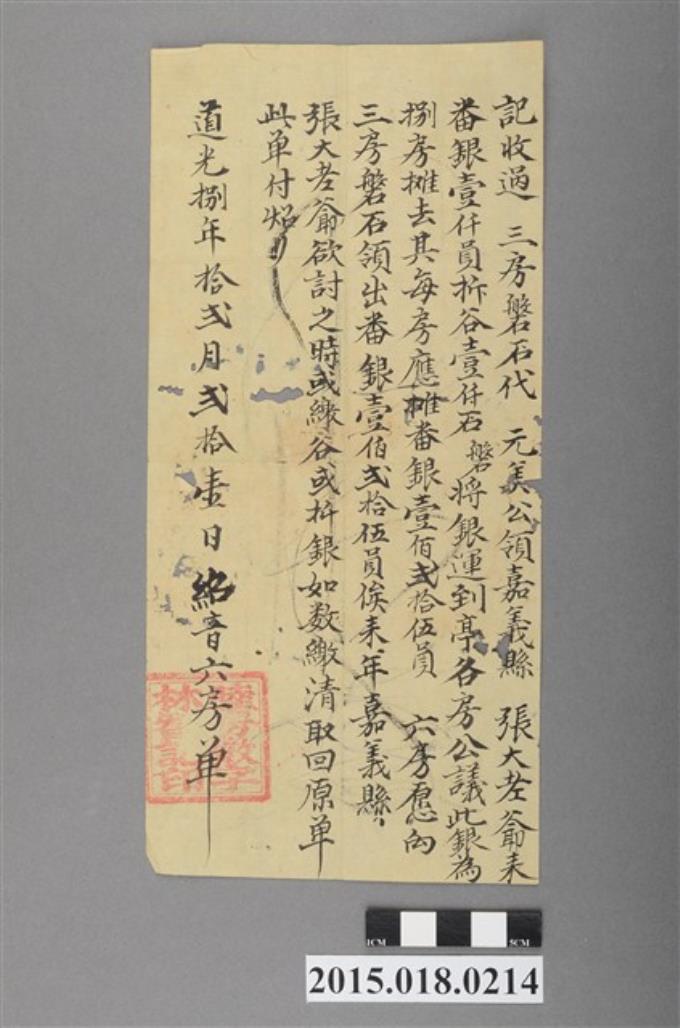 記收過 三房磐石代 元美公領嘉義縣 張大老爺来
番銀壹仟員折谷壹仟石磐將銀運到亭各房公議此銀為
捌房攤去其每房應攤番銀壹佰弍拾伍員 六房愿向
三房磐石領出番銀壹佰弍拾伍員俟来年嘉義縣
張大老爺欲討之時或繳谷或折銀如数繳清取回原单
此单付炤
道光捌年拾弍月弍拾壹日紹音六房单
1CM
5CM
2015.018.0214